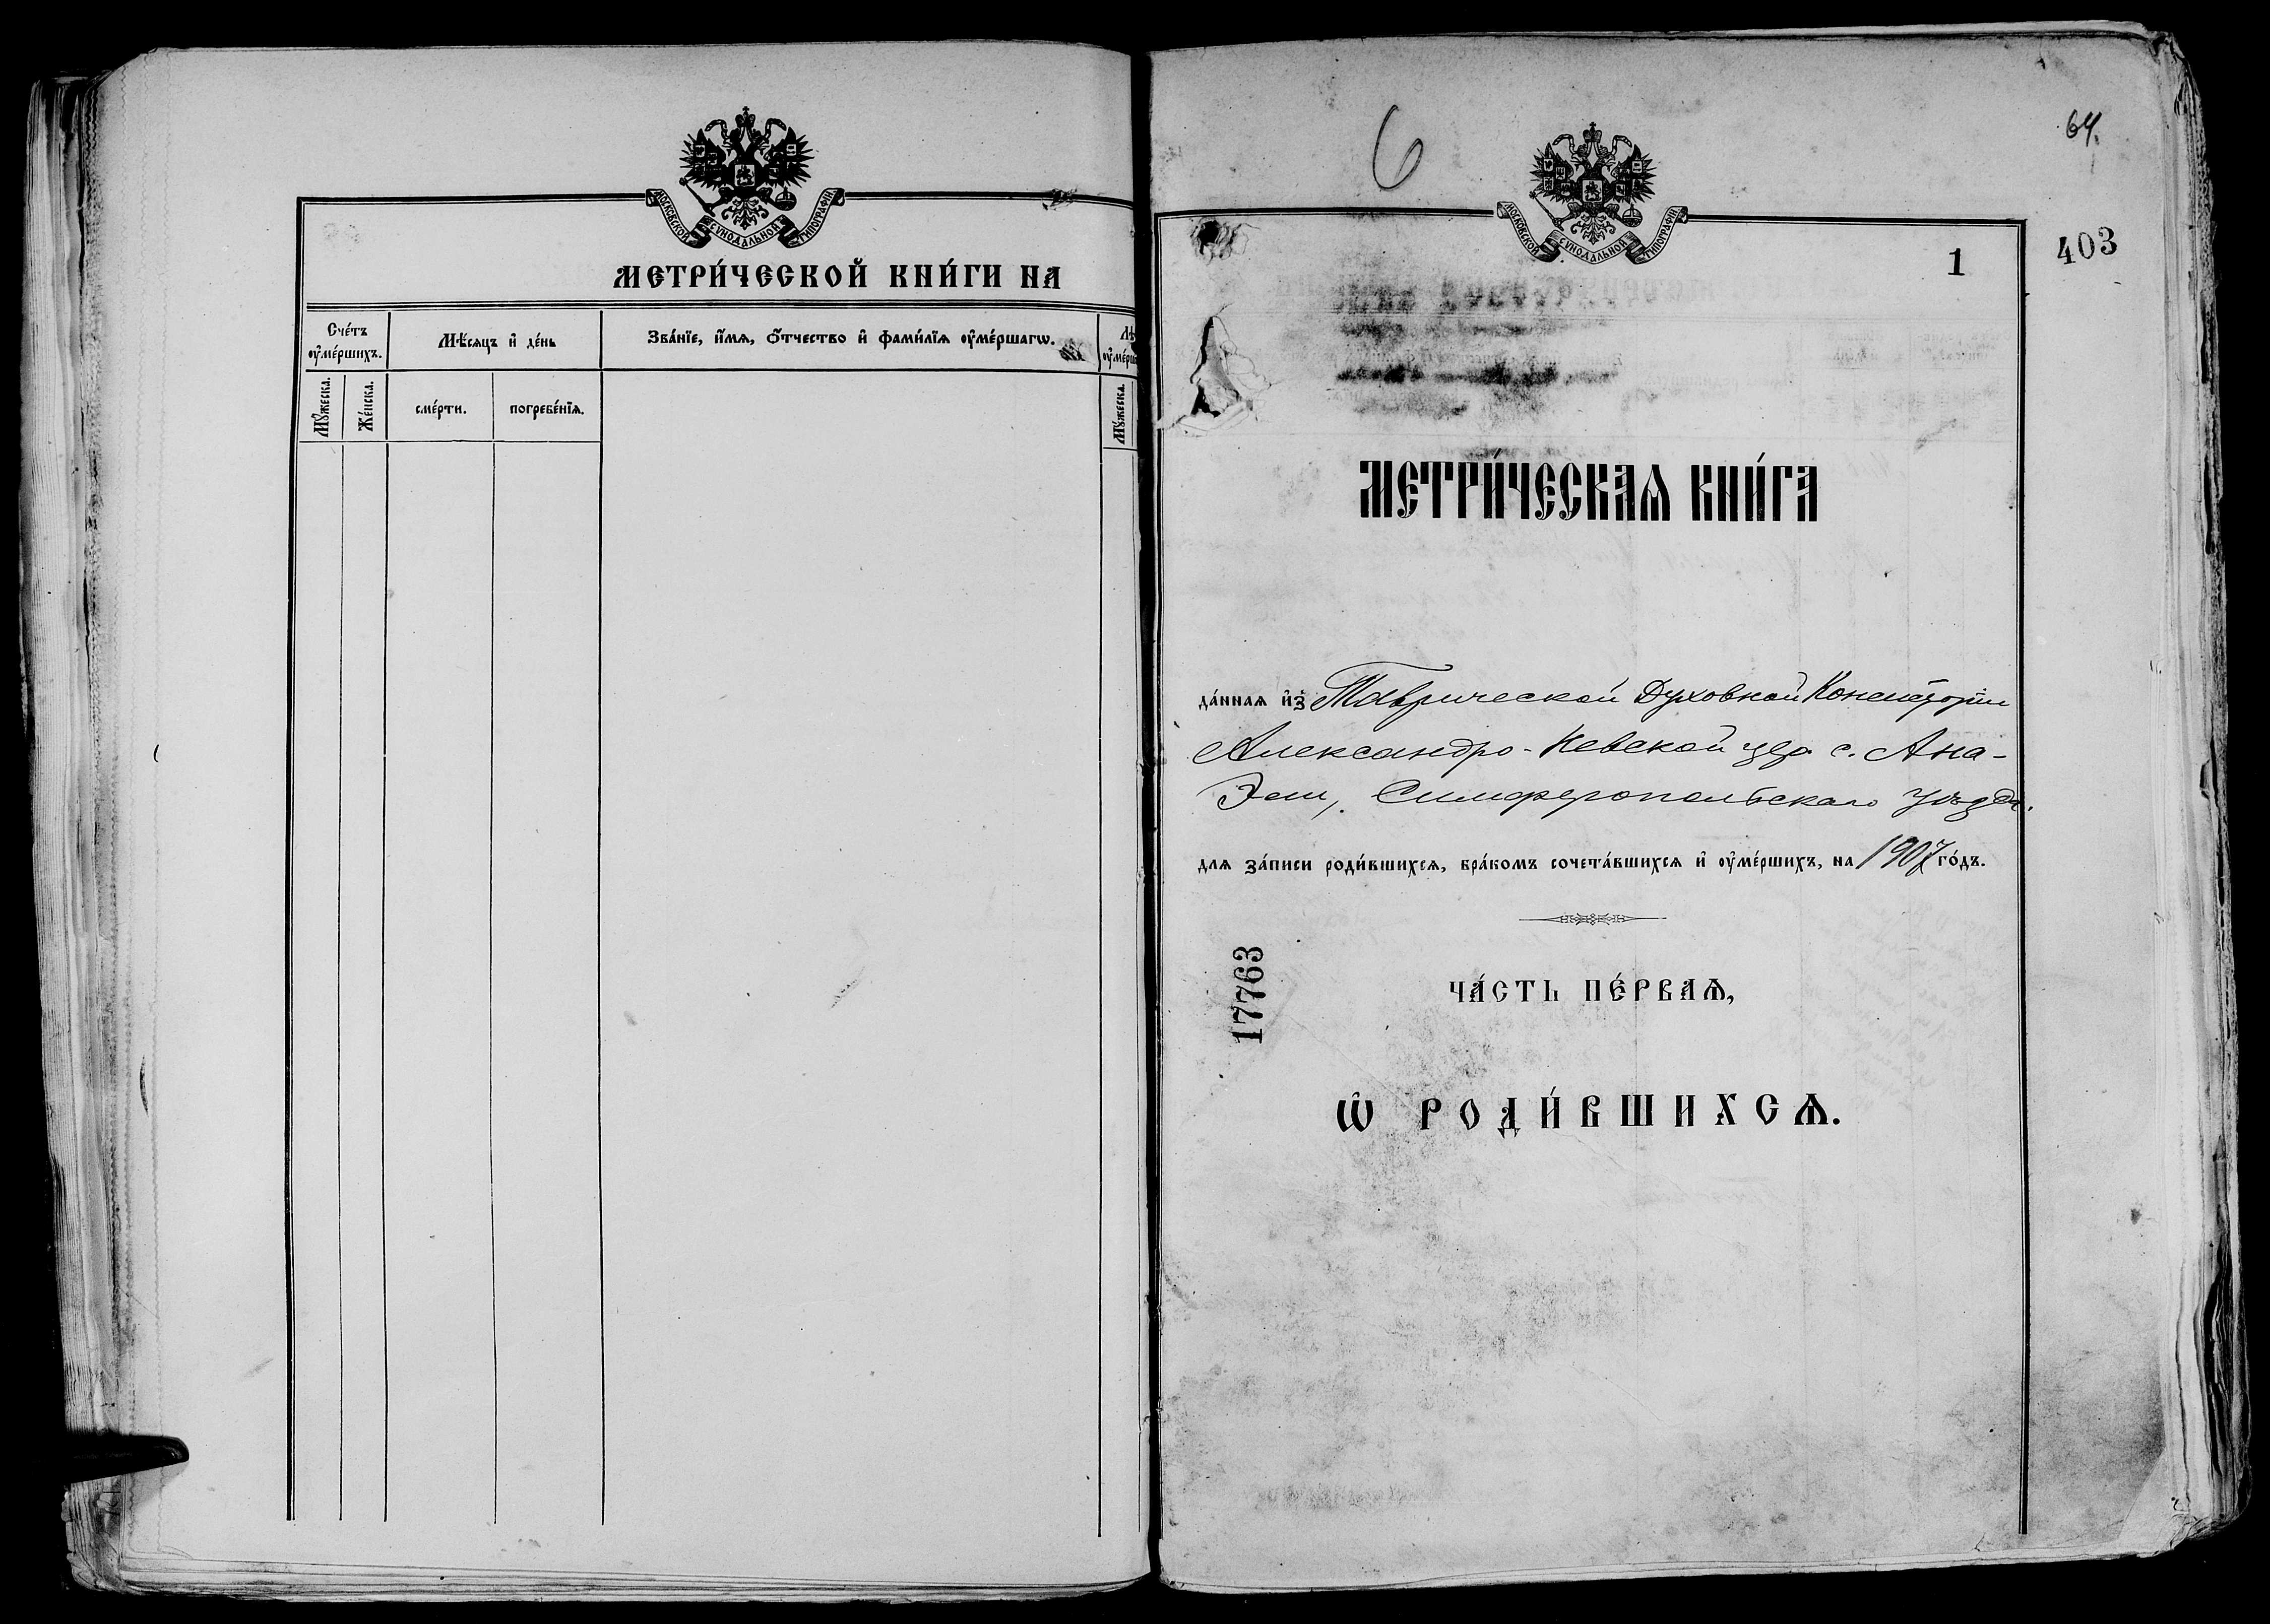 МОСКОВСКОЙ СѴНОДАЛЬНОЙ ТИПОГРАФІИ
МЕТРИ́ЧЕСКОЙ КНИ́ГИ НА
Сче́тъ ᲂу҆ме́ршихъ.
Мѣ́сяцъ и҆ де́нь
Зва́нїе, и҆́мѧ, ѻ҆́тчество и҆ фами́лїѧ ᲂу҆ме́ршагѡ.
Мꙋ́жеска.
Же́нска.
сме́рти.
погребе́нїѧ.
Мꙋ́жеска.
6
64.
МОСКОВСКОЙ СѴНОДАЛЬНОЙ ТИПОГРАФІИ
1
403
МЕТРИ́ЧЕСКАѦ КНИ́ГА
да́ннаѧ и҆з̾ Таврической Духовной Консисторіи
Александро-Невской цер. с. Ана-
Эли, Симферопольскаго уѣзда.
для за́писи роди́вшихсѧ, бра́комъ сочета́вшихсѧ и҆ ᲂу҆ме́ршихъ, на 1907 го́дъ.
17763
ЧА́СТЬ ПЕ́РВАѦ,
Ѡ҆ РОДИ́ВШИХСѦ.